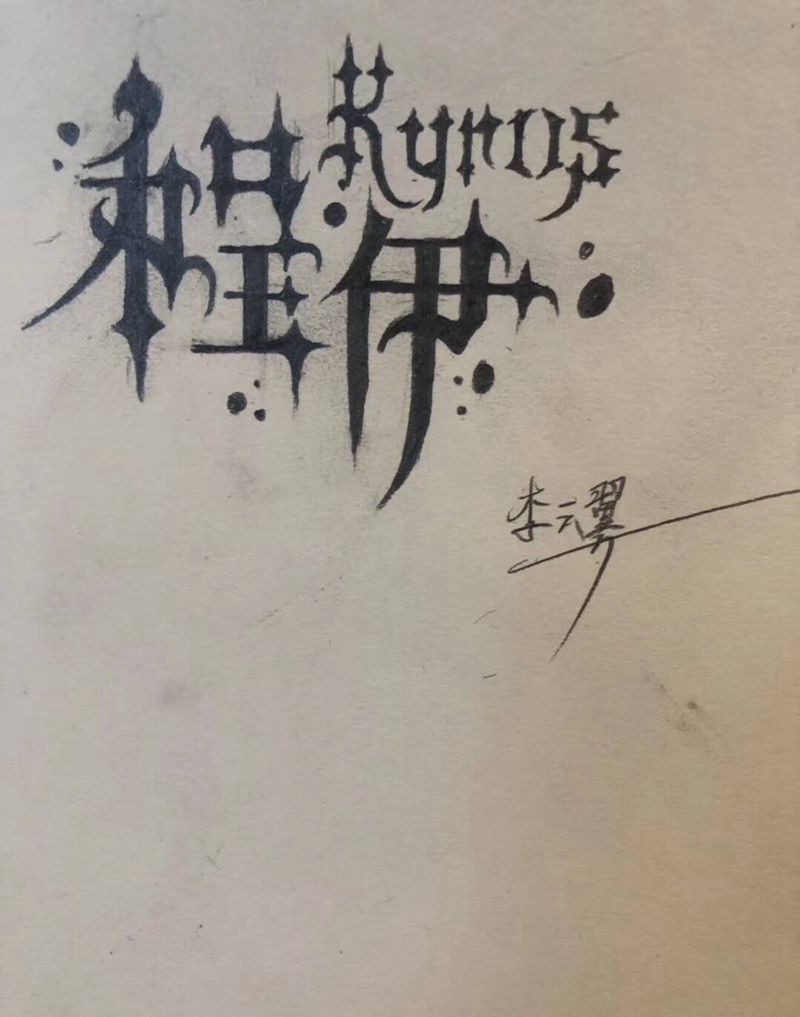 Kyrios
程伊
李云翼